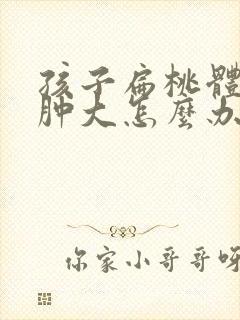 孩子扁桃體
肿大怎麼办
你家小哥哥呀